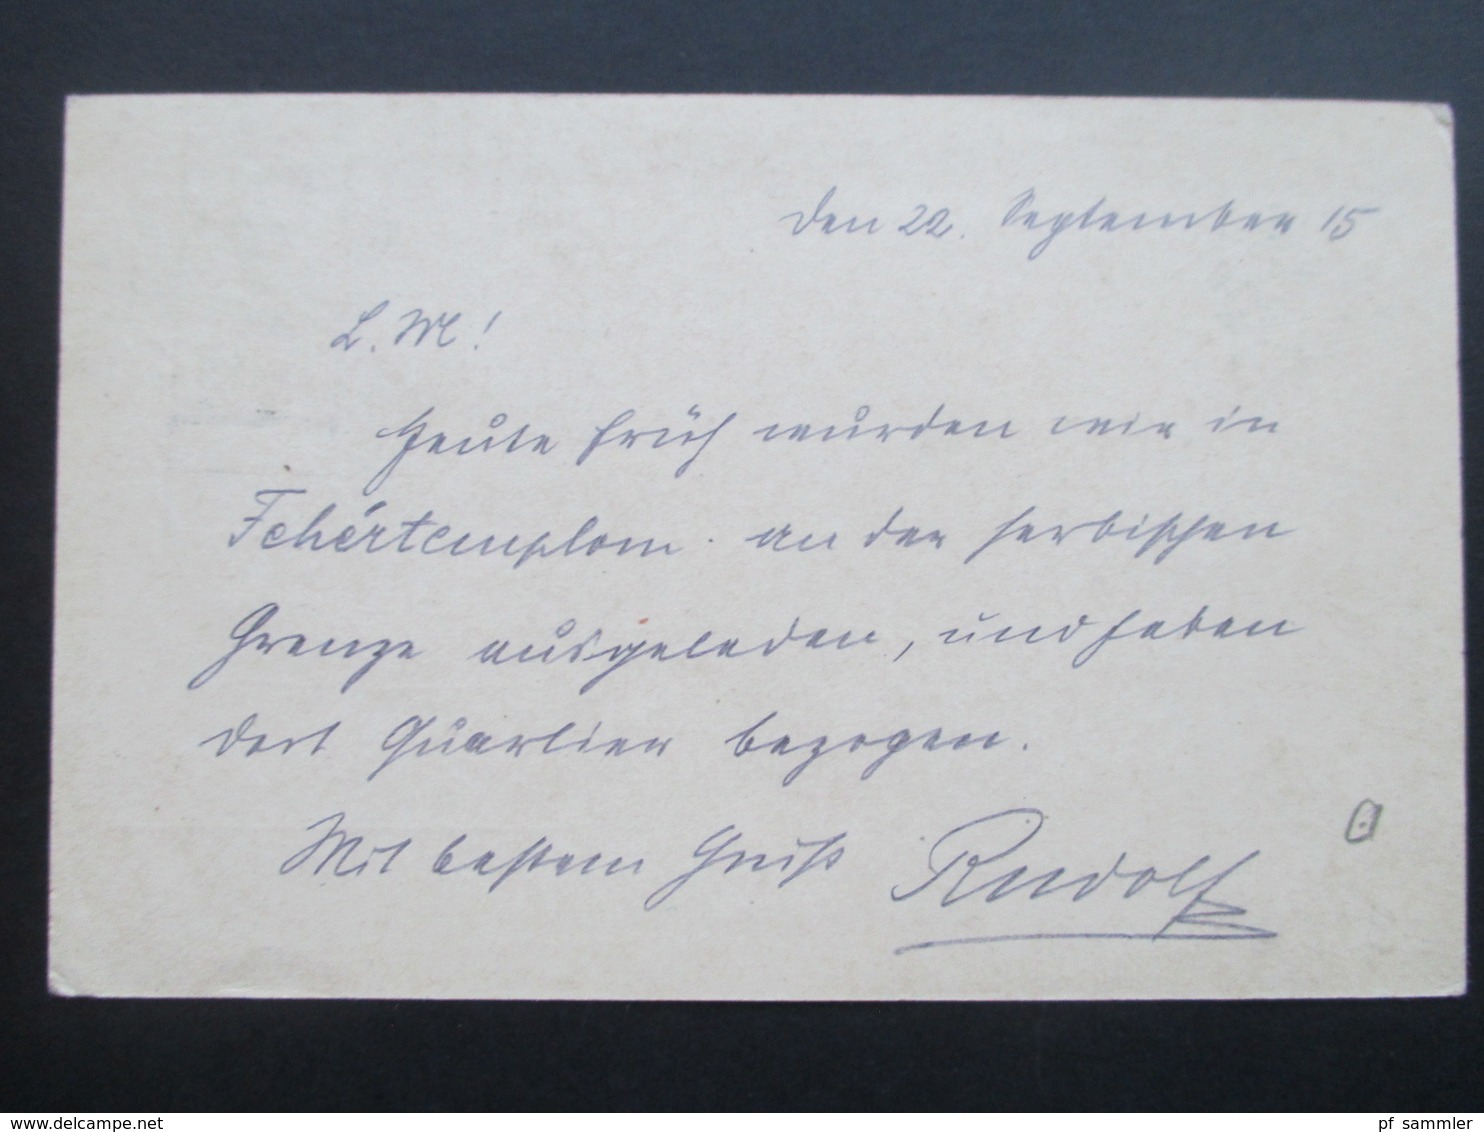 den 22. September 15
L. M!
Heute früh wurden wir in
Fehértemplom. an der serbischen
Grenze ausgeladen, und haben
dort Quartier bezogen.
Mit bestem Gruß Rudolf
www.delcampe.net
pf_sammler